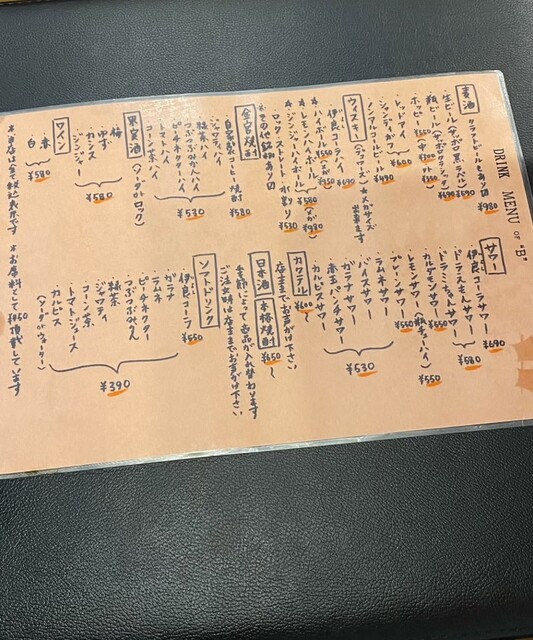 DRINK MENU OF "B"
麦酒
クラフトビールもあり〼 ¥980
・生ビール(サッポロ黒ラベル) ¥590
・瓶ビール(サッポロクラシック) ¥690
・ホッピー ¥550 (中 ¥200 外 ¥350)
・レッドアイ
・シャンディガフ
¥600
・ノンアルコールビール ¥490
ウィスキー
(デュワーズ) ★メガサイズ出来ます
・伊良コーラハイ ¥690
★・ハイボール ¥550 (メガ ¥950)
★・レモンハイボール
★・ジンジャーハイボール
¥580 (メガ ¥980)
・ロック・ストレート・水割り ¥530
*その他銘柄あり〼
金宮焼酎
・自家製コーヒー焼酎 ¥580
・ジャスティハイ
・緑茶ハイ
・つぶつぶみかんハイ
・ピーチネクターハイ
・トマトハイ
・コーン茶ハイ
¥530
果実酒
(ソーダorロック)
・梅
・ゆず
・カシス
・ジンジャー
¥580
ワイン
・赤
・白
¥580
サワー
・伊良コーラサワー ¥690
・ドラえもんサワー
・ドラミちゃんサワー
¥580
・カルゲモンサワー
・レモンサワー(瓶チューハイ) ¥550
・プレーンサワー ¥550
・バイスサワー
・ラムネサワー
・ガラナサワー
・赤玉パンチサワー
・カルピスサワー
¥530
カクテル
¥600〜
店主までお声がけ下さい
日本酒
本格焼酎
¥650〜
季節によって当品が入れ替わります
ご注文時は店主までお声がけ下さい
ソフトドリンク
・伊良コーラ ¥550
・ガラナ
・ラムネ
・ピーチネクター
・つぶつぶみかん
・緑茶
・ジャスティ
・コーン茶
・トマトジュース
・カルピス
(ソーダorウォーター)
¥390
*当店は全て税込表示です *お席料として¥450頂戴しています